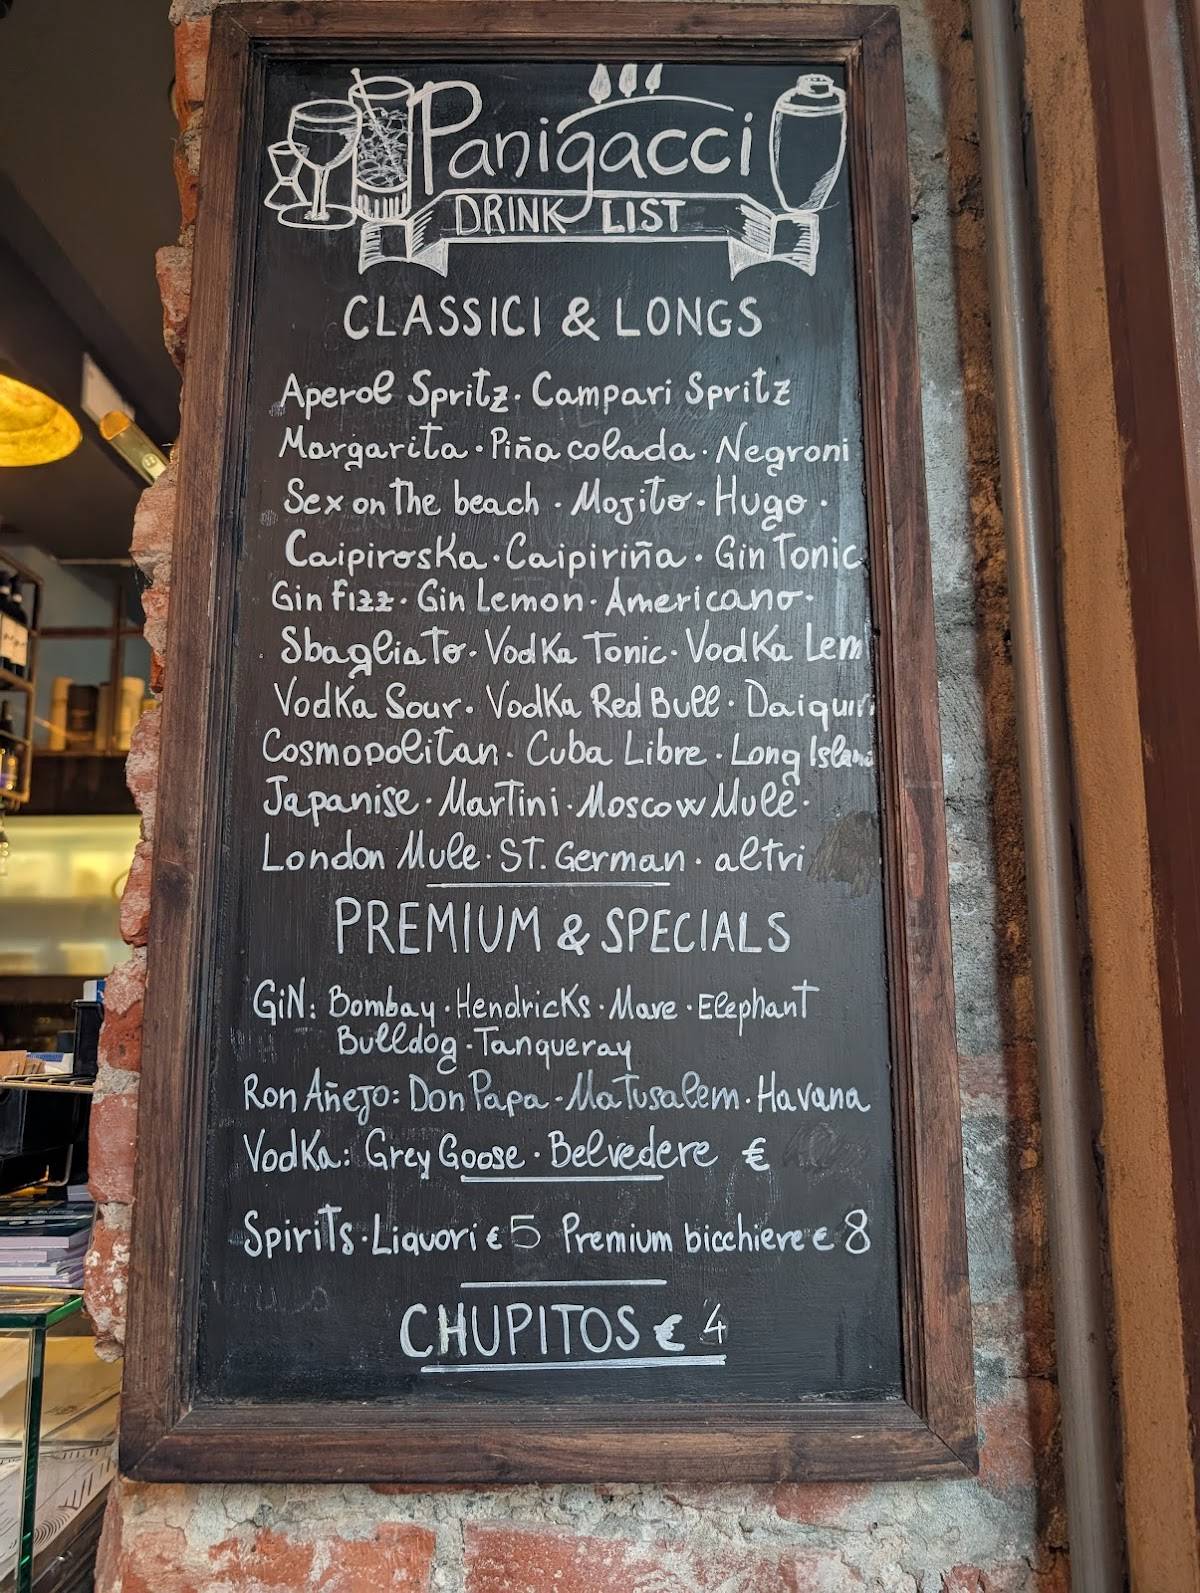 Panigacci
DRINK LIST
CLASSICI & LONGS
Aperol Spritz · Campari Spritz
Margarita · Piña colada · Negroni
Sex on the beach · Mojito · Hugo ·
Caipiroska · Caipiriña · Gin Tonic
Gin Fizz · Gin Lemon · Americano ·
Sbagliato · Vodka Tonic · Vodka Lem
Vodka Sour · Vodka Red Bull · Daiquiri
Cosmopolitan · Cuba Libre · Long Island
Japanise · Martini · Moscow Mule ·
London Mule · ST. German · altri
PREMIUM & SPECIALS
GiN: Bombay · Hendricks · Mare · Elephant
Bulldog · Tanqueray
Ron Añejo: Don Papa · Matusalem · Havana
Vodka: Grey Goose · Belvedere €
Spirits · Liquori € 5 Premium bicchiere € 8
CHUPITOS € 4